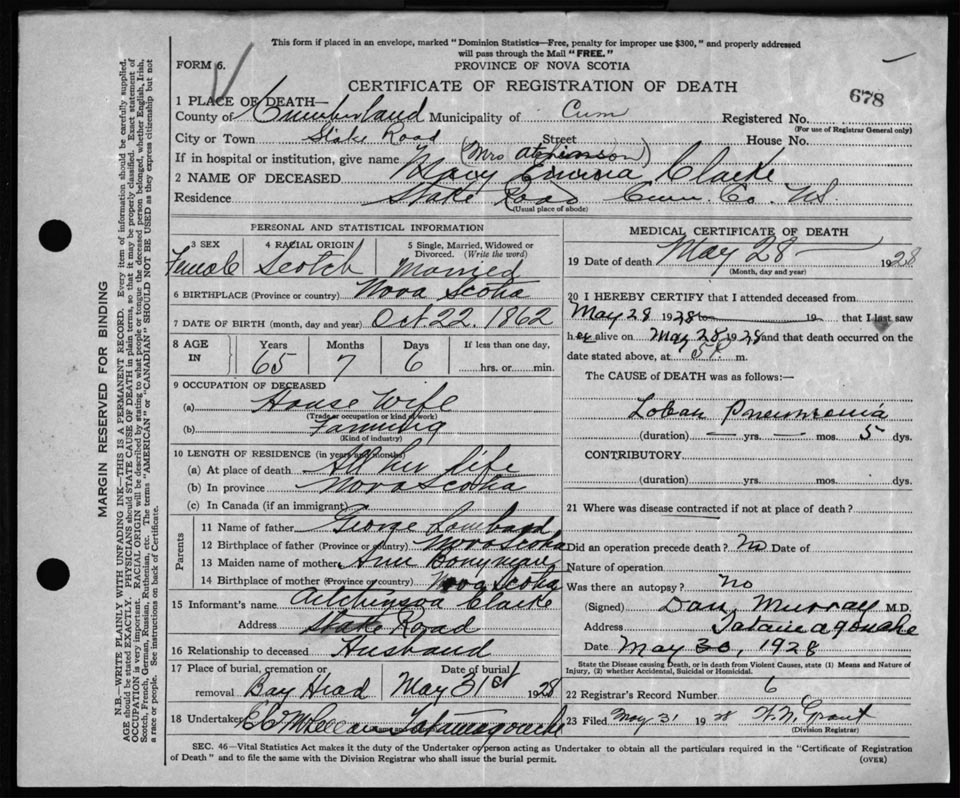 This form if placed in an envelope, marked "Dominion Statistics—Free, penalty for improper use $300," and properly addressed
will pass through the Mail "FREE."
FORM 6.
PROVINCE OF NOVA SCOTIA
CERTIFICATE OF REGISTRATION OF DEATH
678
1 PLACE OF DEATH—
County of Cumberland Municipality of Cum Registered No.
(For use of Registrar General only)
City or Town Stake Road Street House No.
If in hospital or institution, give name (Mrs Atchinson)
2 NAME OF DECEASED Mary Emma Clarke
Residence Stake Road Cum. Co. N.S.
(Usual place of abode)
PERSONAL AND STATISTICAL INFORMATION
3 SEX 4 RACIAL ORIGIN 5 Single, Married, Widowed or Divorced. (Write the word)
Female Scotch Married
6 BIRTHPLACE (Province or country) Nova Scotia
7 DATE OF BIRTH (month, day and year) Oct 22. 1862
8 AGE IN Years Months Days If less than one day,
65 7 6 hrs. or min.
9 OCCUPATION OF DECEASED
(a) House Wife
(Trade or occupation or kind of work)
(b) Farming
(Kind of industry)
10 LENGTH OF RESIDENCE (in years and months)
(a) At place of death All her life
(b) In province Nova Scotia
(c) In Canada (if an immigrant)
Parents
11 Name of father George Lombard
12 Birthplace of father (Province or country) Nova Scotia
13 Maiden name of mother Ann
14 Birthplace of mother (Province or country) Nova Scotia
15 Informant's name Aitchinson Clarke
Address Stake Road
16 Relationship to deceased Husband
17 Place of burial, cremation or removal Bay Head Date of burial May 31st 1928
18 Undertaker Tatamagouche
(Name and address)
MEDICAL CERTIFICATE OF DEATH
19 Date of death May 28 1928
(Month, day and year)
20 I HEREBY CERTIFY that I attended deceased from
May 28 1928 to 19 that I last saw
her alive on May 28 1928 and that death occurred on the
date stated above, at 5 P. m.
The CAUSE of DEATH was as follows:—
Lobar Pneumonia
(duration) — yrs. — mos. 5 dys.
CONTRIBUTORY
(duration) yrs. mos. dys.
21 Where was disease contracted if not at place of death?
Did an operation precede death? No Date of
Nature of operation
Was there an autopsy? No
(Signed) Dan Murray M.D.
Address Tatamagouche
Date May 30, 1928
State the Disease causing Death, or in death from Violent Causes, state (1) Means and Nature of
Injury, (2) whether Accidental, Suicidal or Homicidal.
22 Registrar's Record Number 6
23 Filed May 31 1928 Grant
(Division Registrar)
SEC. 46—Vital Statistics Act makes it the duty of the Undertaker or person acting as Undertaker to obtain all the particulars required in the "Certificate of Registration
of Death" and to file the same with the Division Registrar who shall issue the burial permit.
(OVER)
MARGIN RESERVED FOR BINDING
N.B.—WRITE PLAINLY WITH UNFADING INK—THIS IS A PERMANENT RECORD. Every item of information should be carefully supplied.
AGE should be stated EXACTLY. PHYSICIANS should STATE CAUSE OF DEATH in plain terms, so that it may be properly classified. Exact statement of
OCCUPATION is very important. RACIAL ORIGIN will be described by stating to what people or tongue the deceased person belonged, whether English, Irish,
Scotch, French, German, Russian, Ruthenian, etc. The terms "AMERICAN" or "CANADIAN" SHOULD NOT BE USED as they express citizenship but not
a race or people. See instructions on back of Certificate.